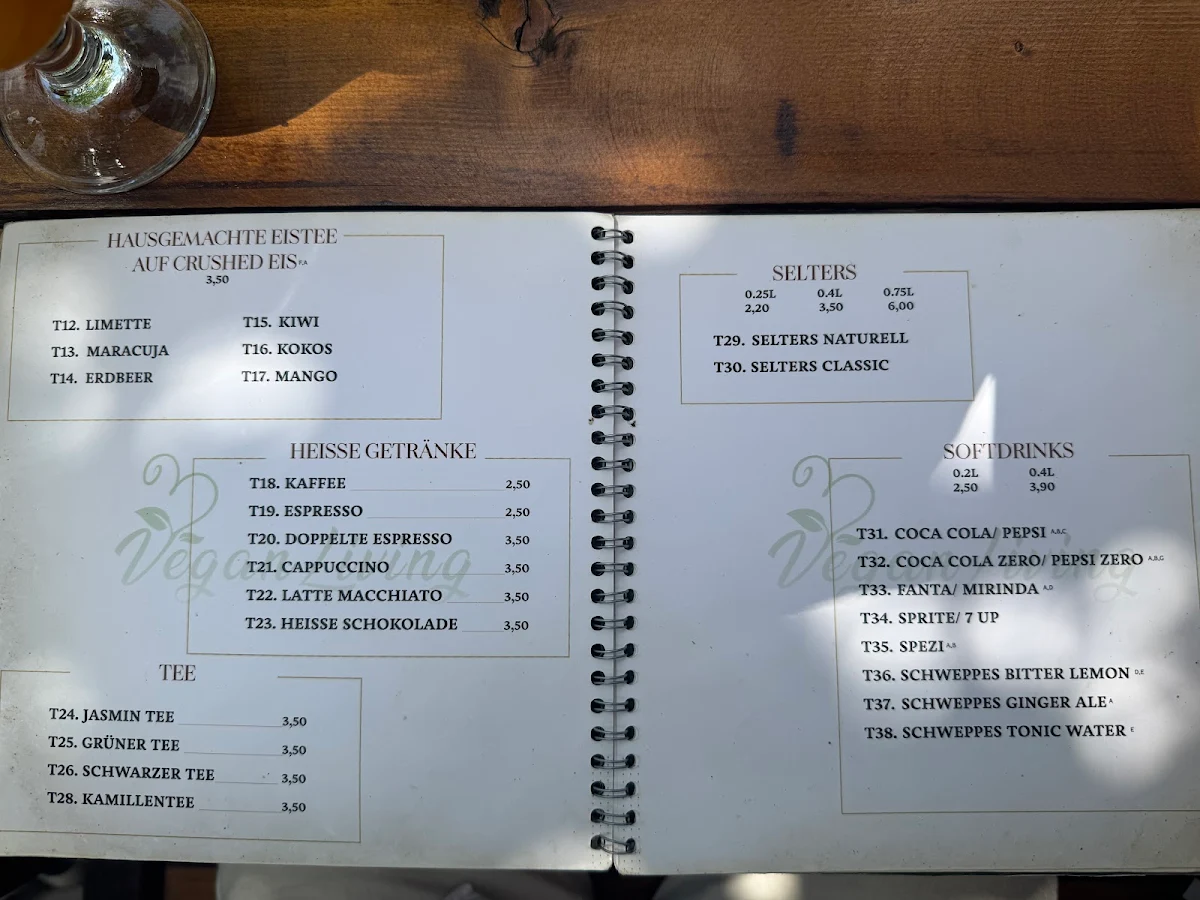 HAUSGEMACHTE EISTEE
AUF CRUSHED EIS F,A
3,50
T12. LIMETTE
T13. MARACUJA
T14. ERDBEER
T15. KIWI
T16. KOKOS
T17. MANGO
HEISSE GETRÄNKE
T18. KAFFEE 2,50
T19. ESPRESSO 2,50
T20. DOPPELTE ESPRESSO 3,50
T21. CAPPUCCINO 3,50
T22. LATTE MACCHIATO 3,50
T23. HEISSE SCHOKOLADE 3,50
Vegan Living
TEE
T24. JASMIN TEE 3,50
T25. GRÜNER TEE 3,50
T26. SCHWARZER TEE 3,50
T28. KAMILLENTEE 3,50
SELTERS
0.25L 0.4L 0.75L
2,20 3,50 6,00
T29. SELTERS NATURELL
T30. SELTERS CLASSIC
SOFTDRINKS
0.2L 0.4L
2,50 3,90
T31. COCA COLA/ PEPSI A,B,G
T32. COCA COLA ZERO/ PEPSI ZERO A,B,G
T33. FANTA/ MIRINDA A,D
T34. SPRITE/ 7 UP
T35. SPEZI A,B
T36. SCHWEPPES BITTER LEMON D,E
T37. SCHWEPPES GINGER ALE A
T38. SCHWEPPES TONIC WATER E
Vegan Living